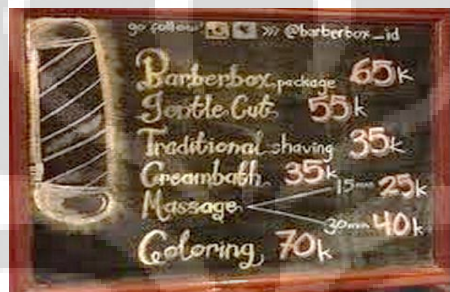 go follow >>> @barberbox_id
Barberbox package 65k
Gentle Cut 55k
Traditional shaving 35k
Creambath 35k
Massage 15mn 25k
30mn 40k
Coloring 70k